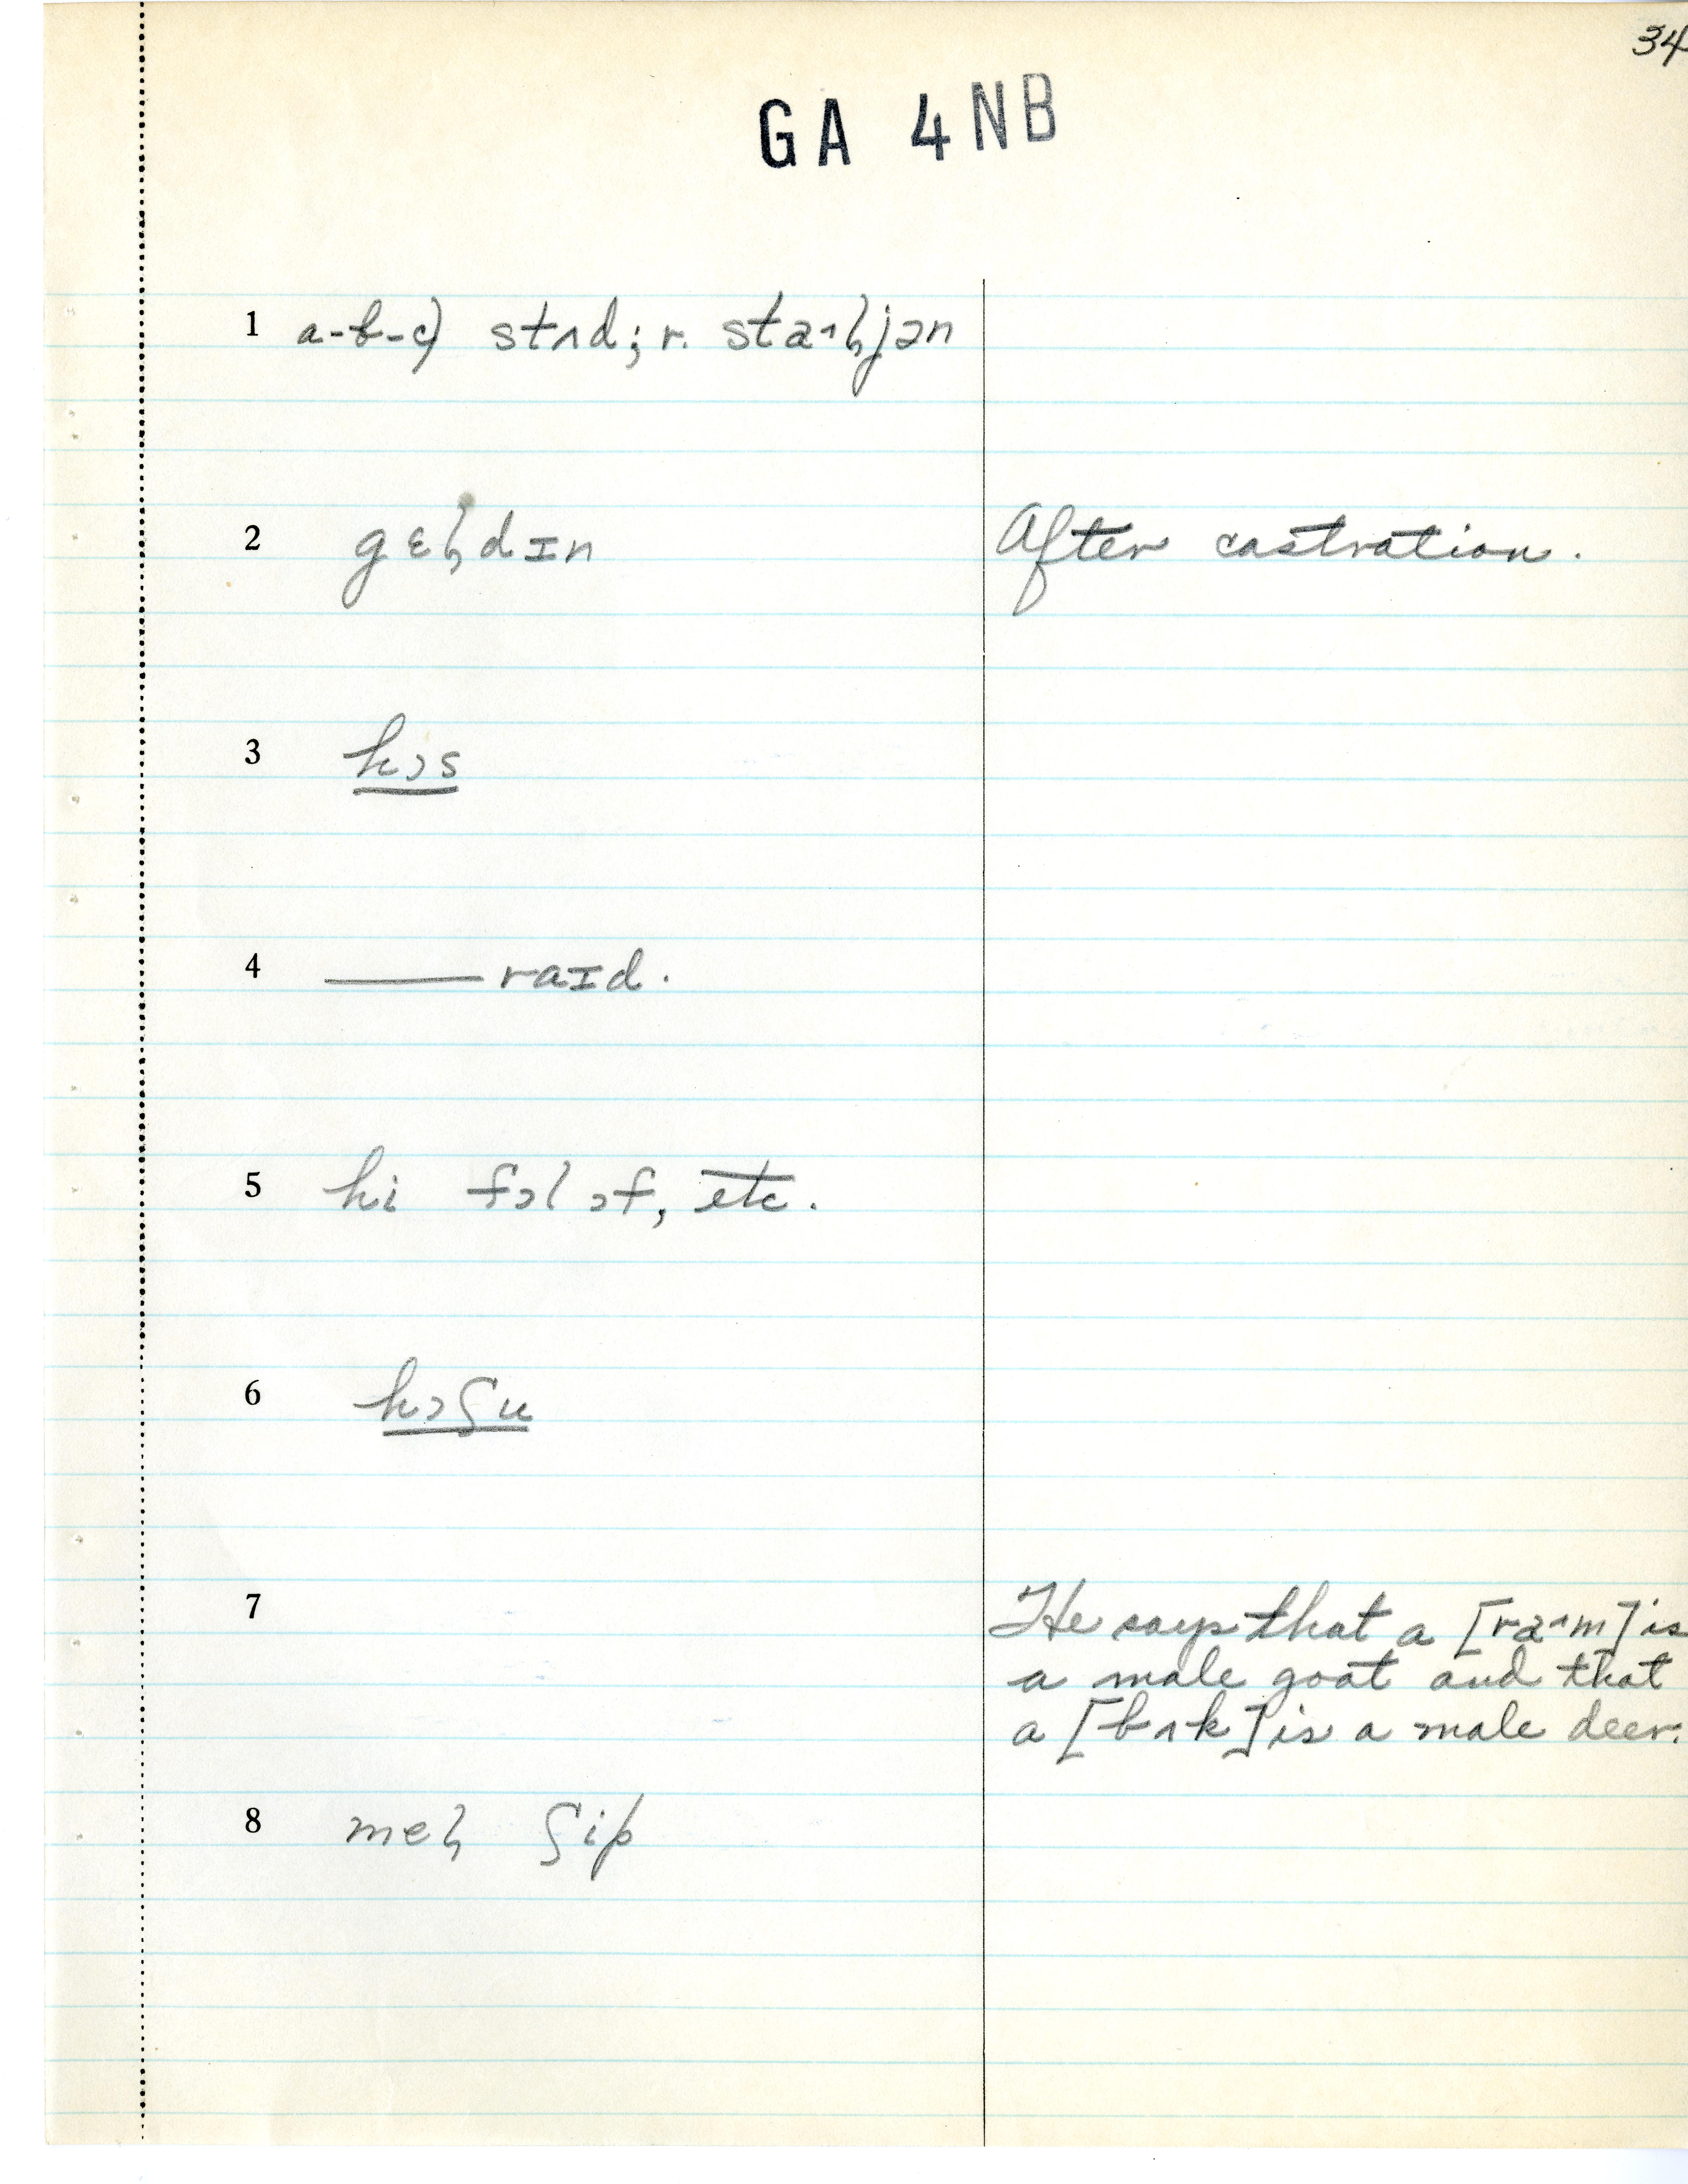 34
GA 4NB
1 a-b-c) stʌd; r. staˑɫjən
2 gɛɫdɪn After castration.
3 hɔs
4 —— raɪd.
5 hi fɔl ɔf, etc.
6 hɔʃu
7 He says that a [raˑm] is
a male goat and that
a [bʌk] is a male deer.
8 meɫ ʃip